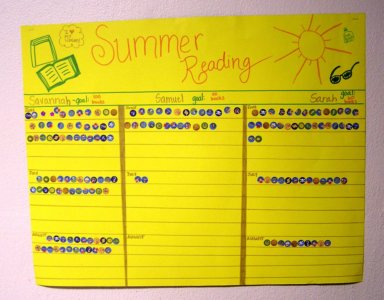 I ♥
Summer
Reading
Savannah - goal: 100 books
Samuel goal: 50 books
Sarah goal: 100 books
June
June
June
July
July
July
August
August
August